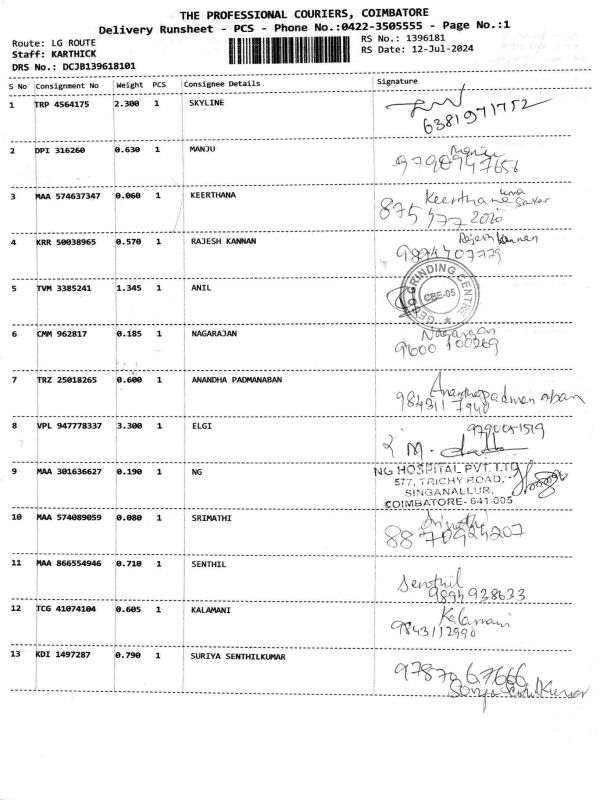 THE PROFESSIONAL COURIERS, COIMBATORE
Delivery Runsheet - PCS - Phone No.:0422-3505555 - Page No.:1
Route: LG ROUTE
RS No.: 1396181
Staff: KARTHICK
RS Date: 12-Jul-2024
DRS No.: DCJB139618101
S No Consignment No Weight PCS Consignee Details Signature
1 TRP 4564175 2.300 1 SKYLINE
6381971752
2 DPI 316260 0.630 1 MANJU
Manju
9790947656
3 MAA 574637347 0.060 1 KEERTHANA
Keerthana
4 KRR 50038965 0.570 1 RAJESH KANNAN
Rajesh Kannan
9894707779
5 TVM 3385241 1.345 1 ANIL
GRINDING CENTRE
CBE-05
6 CMM 962817 0.185 1 NAGARAJAN
Nagarajan
9600 100269
7 TRZ 25018265 0.600 1 ANANDHA PADMANABAN
Ananthapadmanaban
984311 7940
8 VPL 947778337 3.300 1 ELGI
9790051519
M.
9 MAA 301636627 0.190 1 NG
NG HOSPITAL PVT.LTD
577, TRICHY ROAD,
SINGANALLUR,
COIMBATORE-641 005
10 MAA 574089059 0.080 1 SRIMATHI
Srimathi
8870924207
11 MAA 866554946 0.710 1 SENTHIL
Senthil
9894928633
12 TCG 41074104 0.605 1 KALAMANI
Kalamani
9843112990
13 KDI 1497287 0.790 1 SURIYA SENTHILKUMAR
9787067666